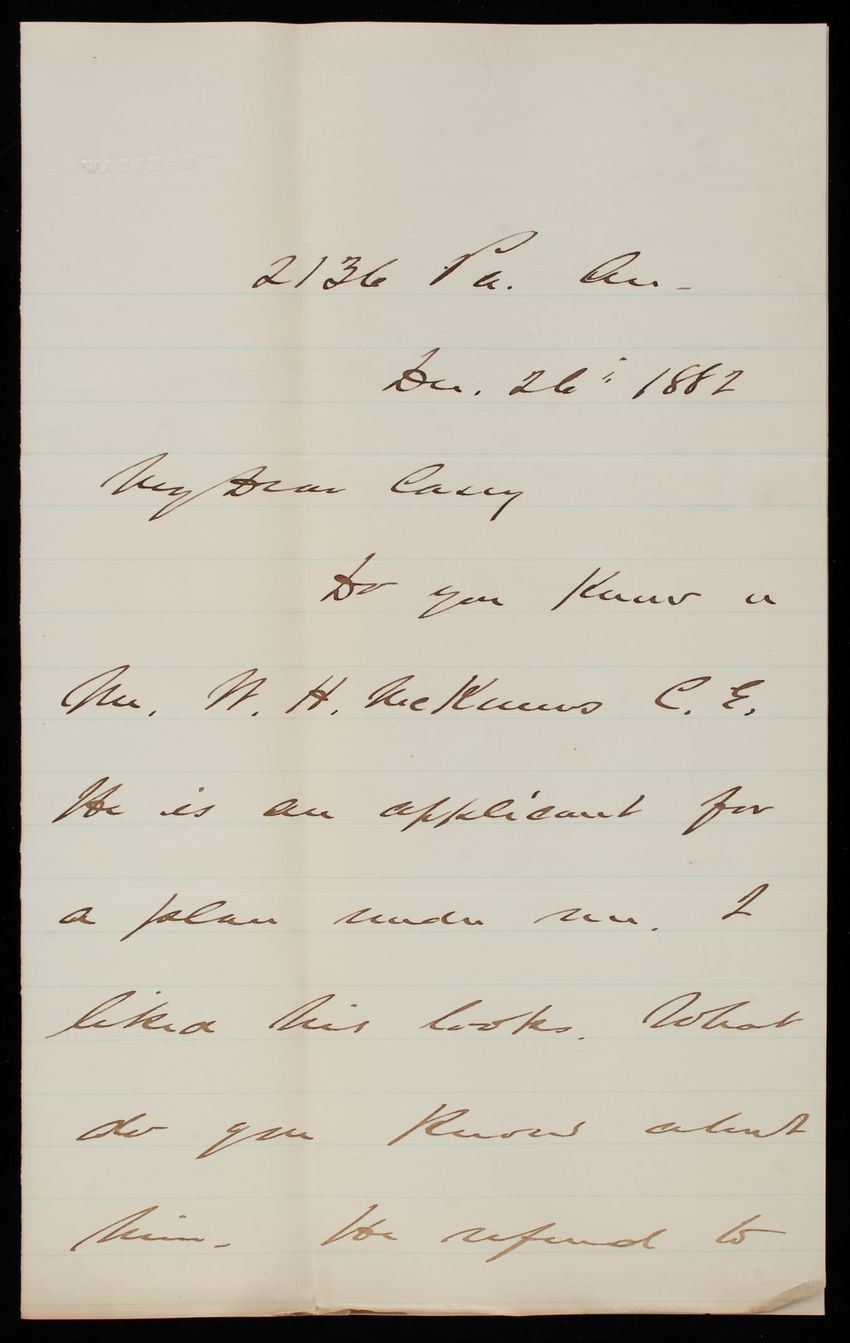 2136 Pa. Av-
Dec. 26" 1882
My Dear Casey
Do you know a
Mr. W. H. C. E.
He is an applicant for
a place under me. I
liked his looks. What
do you know about
him- He referred to